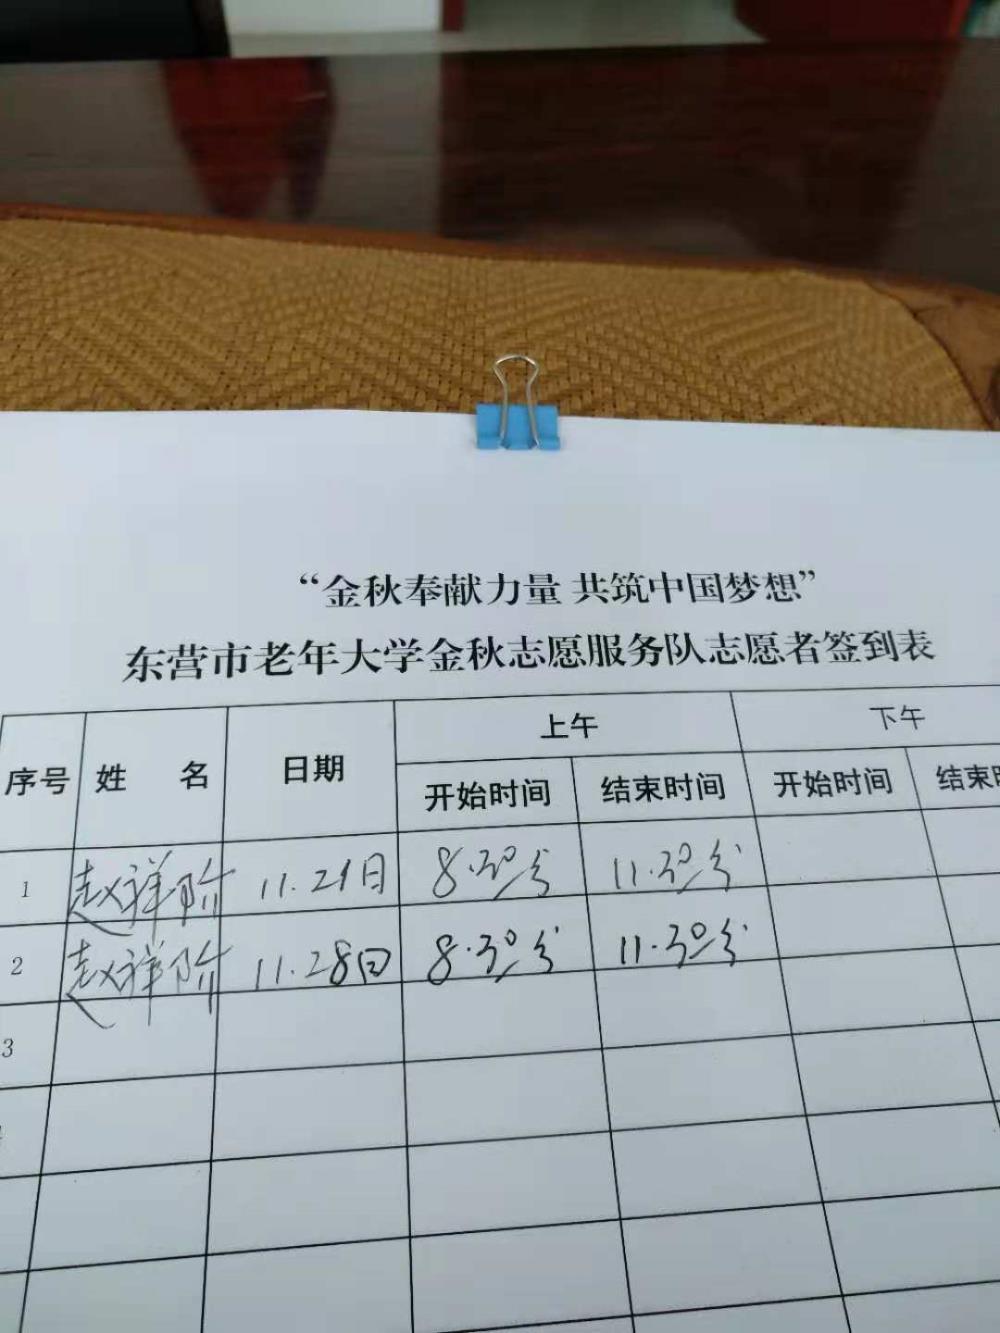 “金秋奉献力量 共筑中国梦想”
东营市老年大学金秋志愿服务队志愿者签到表
序号 姓 名 日期 上午 下午
开始时间 结束时间 开始时间 结束
1 赵祥阶 11.21日 8.30分 11.30分
2 赵祥阶 11.28日 8.30分 11.30分
3